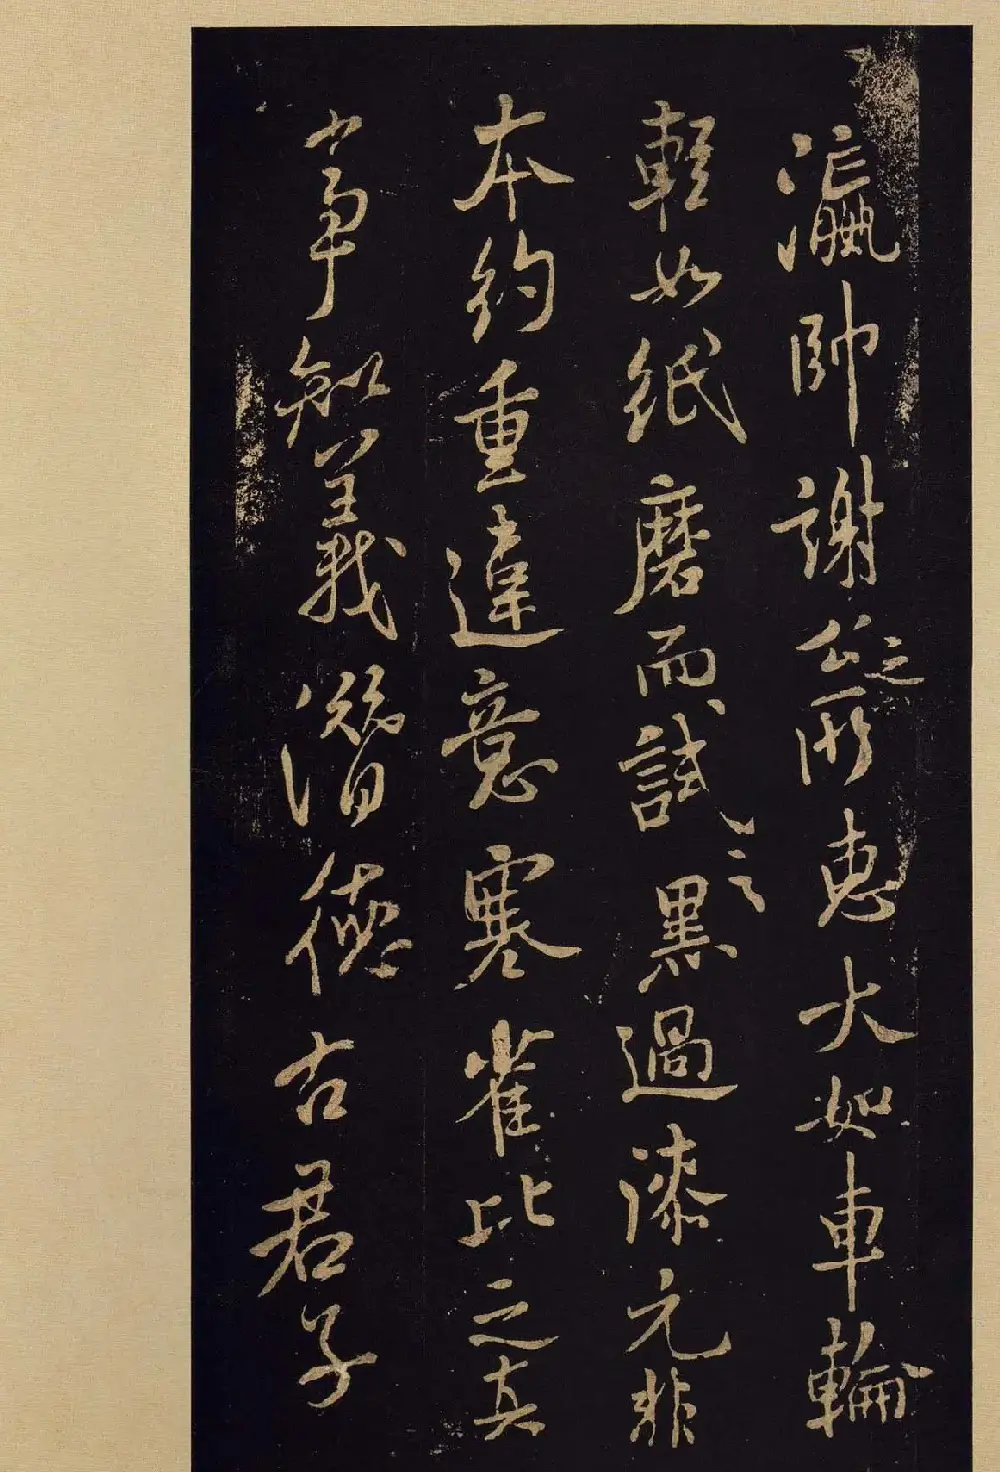 瀛帥謝公之所惠大如車輪
輕如紙磨而試之黑過漆元非
本約重違意寒雀比之真
寧知義潛德古君子